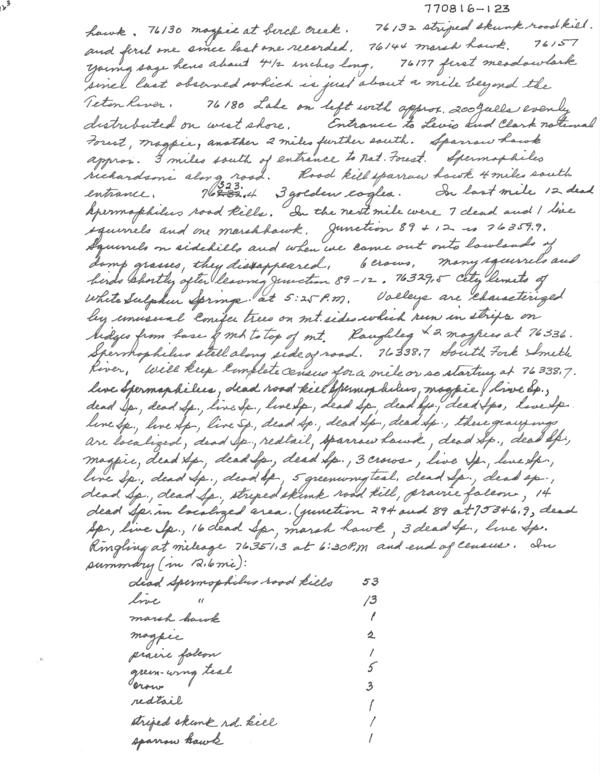 123
770816-123
hawk. 76130 magpie at birch Creek. 76132 striped skunk road kill.
and first one since last one recorded. 76144 marsh hawk. 76157
young sage hens about 4 1/2 inches long. 76177 first meadowlark
since last observed which is just about a mile beyond the
Teton River. 76180 Lake on left with approx. 200 gulls evenly
distributed on west shore. Entrance to Lewis and Clark national
Forest, Magpie, another 2 miles further south. Sparrow hawk
approx. 3 miles south of entrance to Nat. Forest. Spermophiles
richardsoni along road. Road kill sparrow hawk 4 miles south
entrance. 76323.4 3 golden eagles. In last mile 12 dead
Spermophilus road kills. In the next mile were 7 dead and 1 live
squirrels and one marsh hawk. Junction 89 + 12 is 76359.9.
Squirrels on sidehills and when we came out onto lowlands of
damp grasses, they disappeared. 6 crows. Many squirrels and
birds shortly after leaving Junction 89-12. 76329.5 City limits of
White Sulphur Springs at 5:25 P.M. Valleys are characterized
by unusual Conifer trees on mt. sides which run in strips on
ridges from base of mt to top of mt. Roughleg + 2 magpies at 76336.
Spermophilus still along side of road. 76338.7 South Fork Smith
River, will keep complete census for a mile or so starting at 76338.7.
live Spermophilus, dead road kill Spermophilus, magpie, live Sp.,
dead Sp., dead Sp., live Sp., live Sp., dead Sp., dead Sp., dead Sps., live Sp.
live Sp., live Sp., live Sp., dead Sp., dead Sp., dead Sp., these groupings
are localized, dead Sp., redtail, sparrow hawk, dead Sp., dead Sp.,
magpie, dead Sp., dead Sp., dead Sp., 3 crows, live Sp., live Sp.,
live Sp., dead Sp., dead Sp., 5 greenwing teal, dead Sp., dead Sp.,
dead Sp., dead Sp., striped skunk road kill, prairie falcon, 14
dead Sp. in localized area. (junction 294 and 89 at 75346.9, dead
Sp., live Sp., 16 dead Sp., marsh hawk, 3 dead Sp., live Sp.
Ringling at mileage 76351.3 at 6:30 P.M and end of census. In
summary (in 12.6 mi):
dead Spermophilus road kills 53
live " 13
marsh hawk 1
magpie 2
prairie falcon 1
green-wing teal 5
crow 3
redtail 1
striped skunk rd. kill 1
sparrow hawk 1